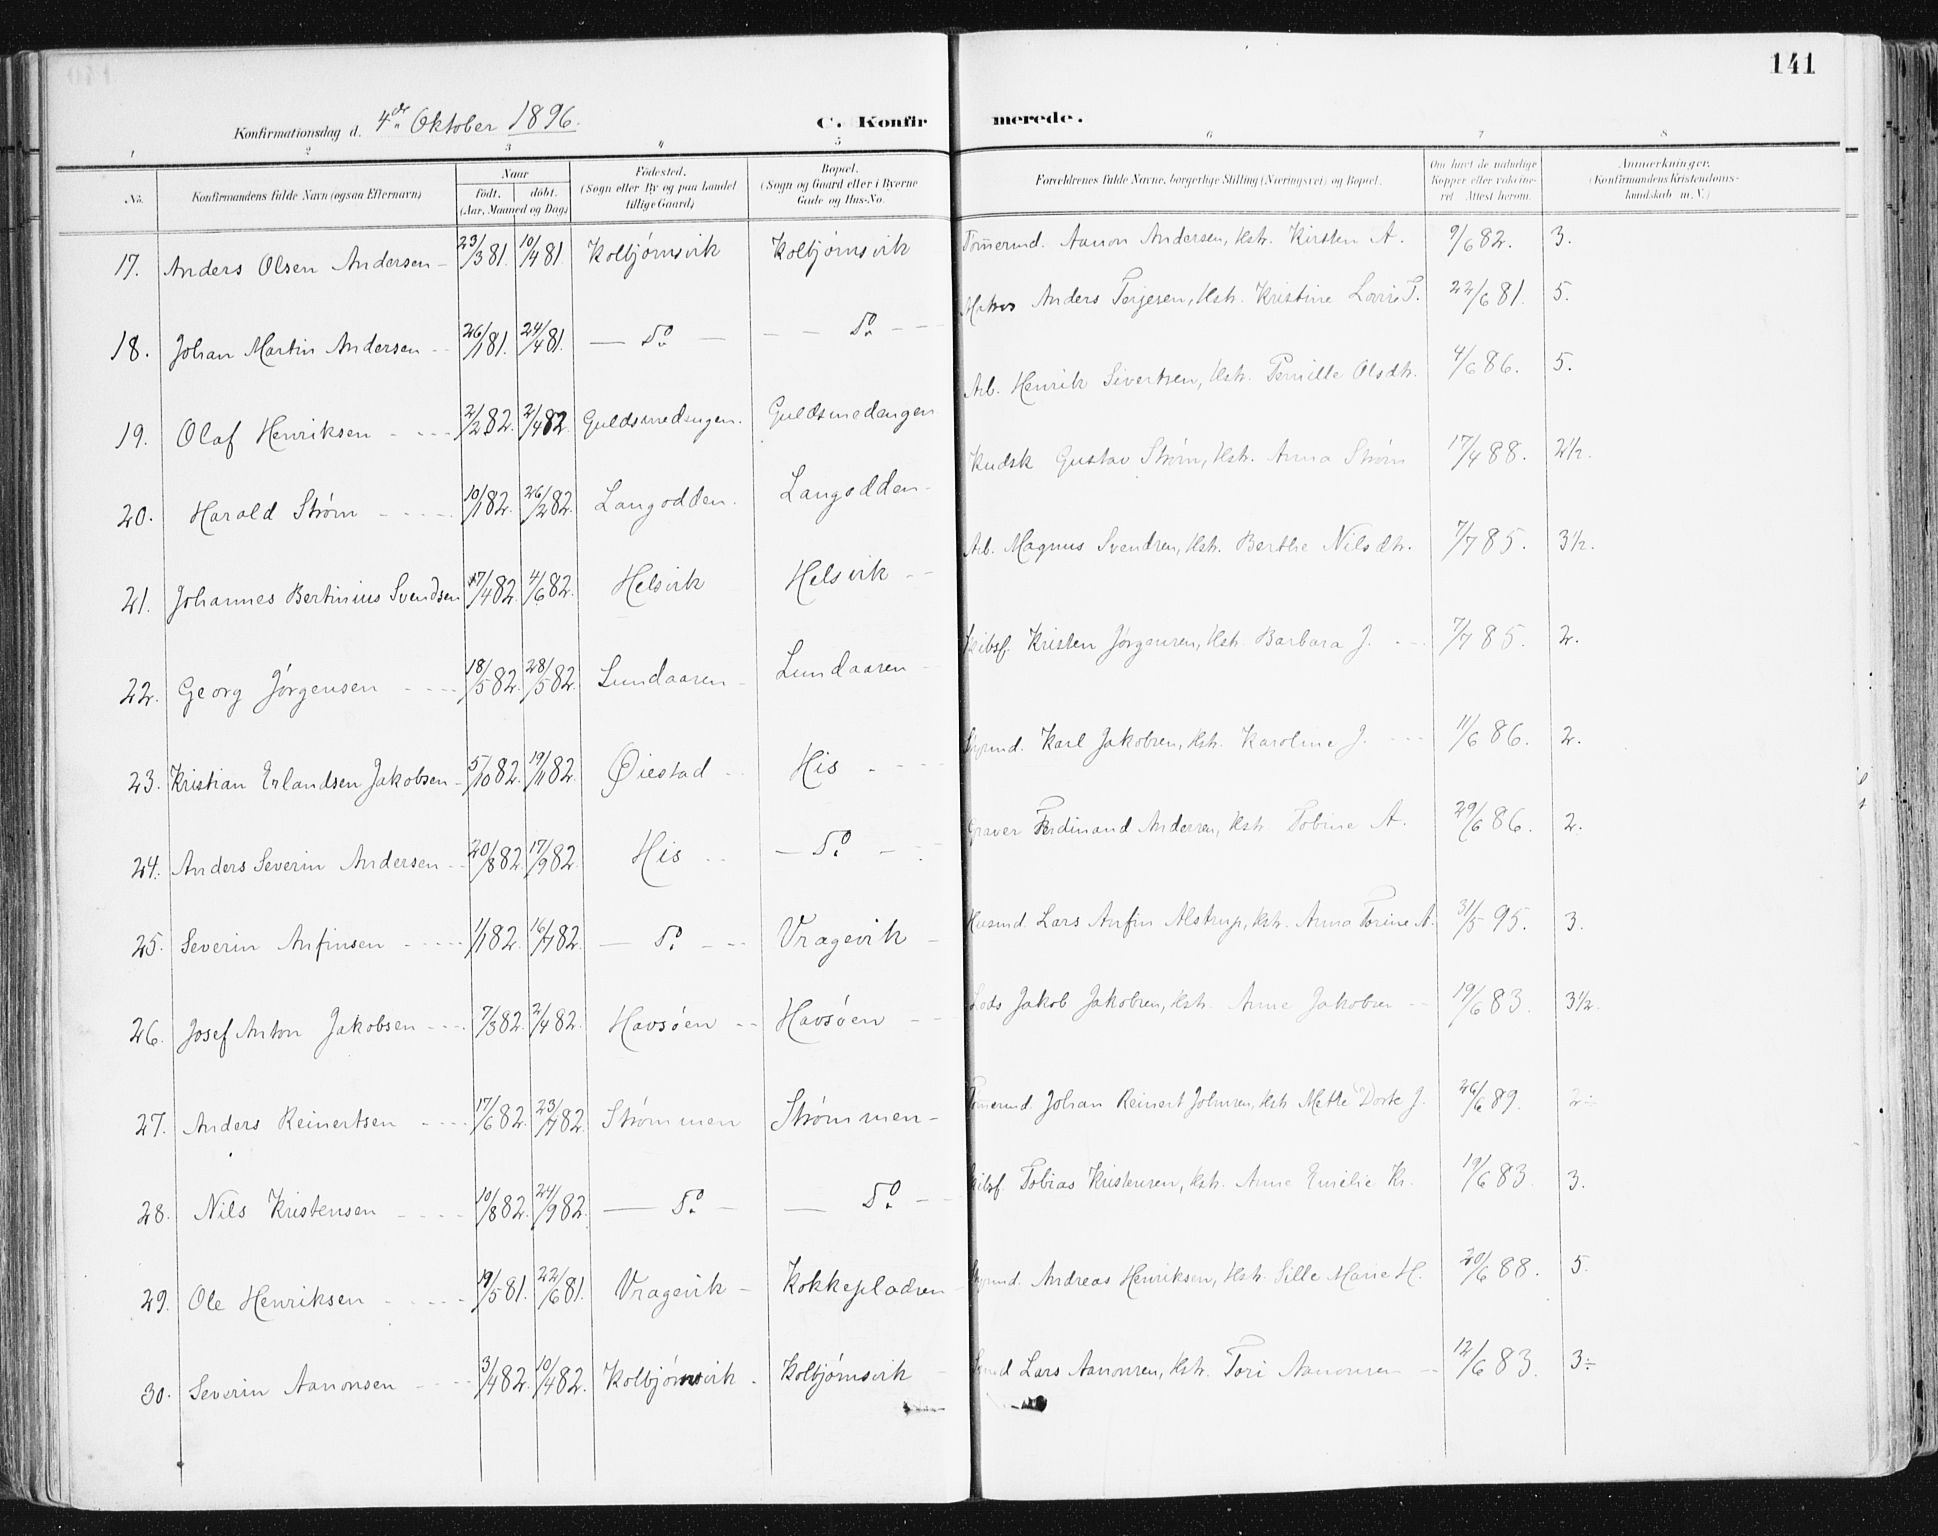 141
Konfirmationsdag d. 4de Oktober 1896. C. Konfirmerede.
1 2 3 4 5 6 7 8
No. Konfirmandens fulde Navn (ogsaa Efternavn) Naar født, døbt. (Aar, Maaned og Dag) Fødested. (Sogn eller By og paa Landet tillige Gaard) Bopæl. (Sogn og Gaard eller i Byerne Gade og Hus-No. Forældrenes fulde Navne, borgerlige Stilling (Næringsvei) og Bopæl. Om havt de naturlige Kopper eller vaccineret. Attest herom. Anmærkninger. (Konfirmandens Kristendomskundskab m. V.)
17. Anders Olsen Andersen - 23/3 81. 10/4 81. Kolbjørnsvik Kolbjørnsvik Tømmerm̄d. Aanon Andersen, Hstr. Kirsten A. 9/6 82. 3.
18. Johan Martin Andersen - 26/1 81. 24/4 81. — Do — — — Do - - Matros Anders Terjesen, Hstr. Kristine Lovise T. 22/6 81. 5.
19. Olaf Henriksen - - - 2/2 82. 2/4 82. Guldsmedengen. Guldsmedengen Arb. Henrik Sivertsen, Hstr. Pernille Olsdtr. 4/6 86. 5.
20. Harald Strøm - - - 10/1 82. 26/2 82. Langodden. Langodden - Kudsk Gustav Strøm, Hstr. Anna Strøm 17/4 88. 2½.
21. Johannes Bertinius Svendsen 17/4 82. 4/6 82. Helsvik Helsvik - - Arb. Magnus Svendsen, Hstr. Berthe Nilsdtr. 7/7 85. 3½.
22. Georg Jørgensen - - - 18/5 82. 28/5 82. Lundaaren - Lundaaren - Skibsf. Kristen Jørgensen, Hstr. Barbara J. - - 7/7 85. 2.
23. Kristian Erlandsen Jakobsen - 5/10 82. 19/11 82. Øiestad - His - - - Karl Jakobsen, Hstr. Karoline J. - - - 11/6 86. 2.
24. Anders Severin Andersen - 20/8 82. 17/9 82. His - - — Do - - Graver Ferdinand Andersen, Hstr. Tobine A. 29/6 86. 2.
25. Severin Anfinsen - - - 1/1 82. 16/7 82. — Do - - Vragevik - Husmd. Lars Anfin Alstrup, Hstr. Anna Torine A. 31/5 95. 3.
26. Josef Anton Jakobsen - - - 7/3 82. 2/4 82. Havsøen - - Havsøen - - Lods Jakob Jakobsen, Hstr. Anne Jakobsen - 19/6 83. 3½.
27. Anders Reinertsen - - - 17/6 82. 23/7 82. Strømmen Strømmen - Tømmermd. Johan Reinert Johnsen, Hstr. Mette Dorte J. 26/6 89. 2÷
28. Nils Kristensen - - - 10/8 82. 24/9 82. — Do - — Do - - Skibsf. Tobias Kristensen, Hstr. Anne Emelie Kr. 19/6 83. 3.
29. Ole Henriksen - - - 19/5 81. 22/6 81. Vragevik - Kokkepladsen - Andreas Henriksen, Hstr. Sille Marie H. 20/6 88. 5.
30. Severin Aanonsen - - - 3/4 82. 10/4 82. Kolbjørnsvik. Kolbjørnsvik - Lars Aanonsen, Hstr. Tori Aanonsen - 12/6 83. 3÷